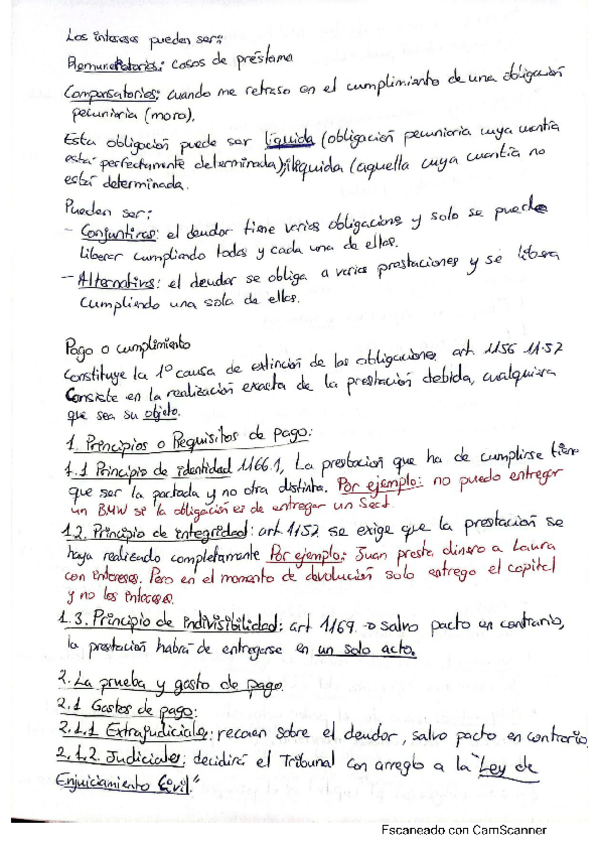 Los intereses pueden ser:
Remuneratorios: casos de préstamo
Compensatorios: cuando me retraso en el cumplimiento de una obligación
pecuniaria (mora).
Esta obligación puede ser líquida (obligación pecuniaria cuya cuantía
está perfectamente determinada); ilíquida (aquella cuya cuantía no
está determinada.
Pueden ser:
- Conjuntivas: el deudor tiene varias obligaciones y solo se puede
liberar cumpliendo todas y cada una de ellas.
- Alternativas: el deudor se obliga a varias prestaciones y se libera
cumpliendo una sola de ellas.
Pago o cumplimiento
Constituye la 1º causa de extinción de las obligaciones art. 1156 1157
Consiste en la realización exacta de la prestación debida, cualquiera
que sea su objeto.
1. Principios o Requisitos de pago:
1.1 Principio de identidad 1166.1, La prestación que ha de cumplirse tiene
que ser la pactada y no otra distinta. Por ejemplo: no puedo entregar
un BMW si la obligación es de entregar un Seat.
1.2. Principio de integridad: art 1157 se exige que la prestación se
haya realizado completamente Por ejemplo: Juan presta dinero a Laura
con intereses. Pero en el momento de devolución solo entrego el capital
y no los intereses.
1.3. Principio de indivisibilidad: art 1169 → salvo pacto en contrario,
la prestación habrá de entregarse en un solo acto.
2. La prueba y gasto de pago.
2.1 Gastos de pago:
2.1.1 Extrajudiciales: recaen sobre el deudor, salvo pacto en contrario
2.1.2. Judiciales: decidirá el Tribunal con arreglo a la "Ley de
Enjuiciamiento Civil"
Escaneado con CamScanner